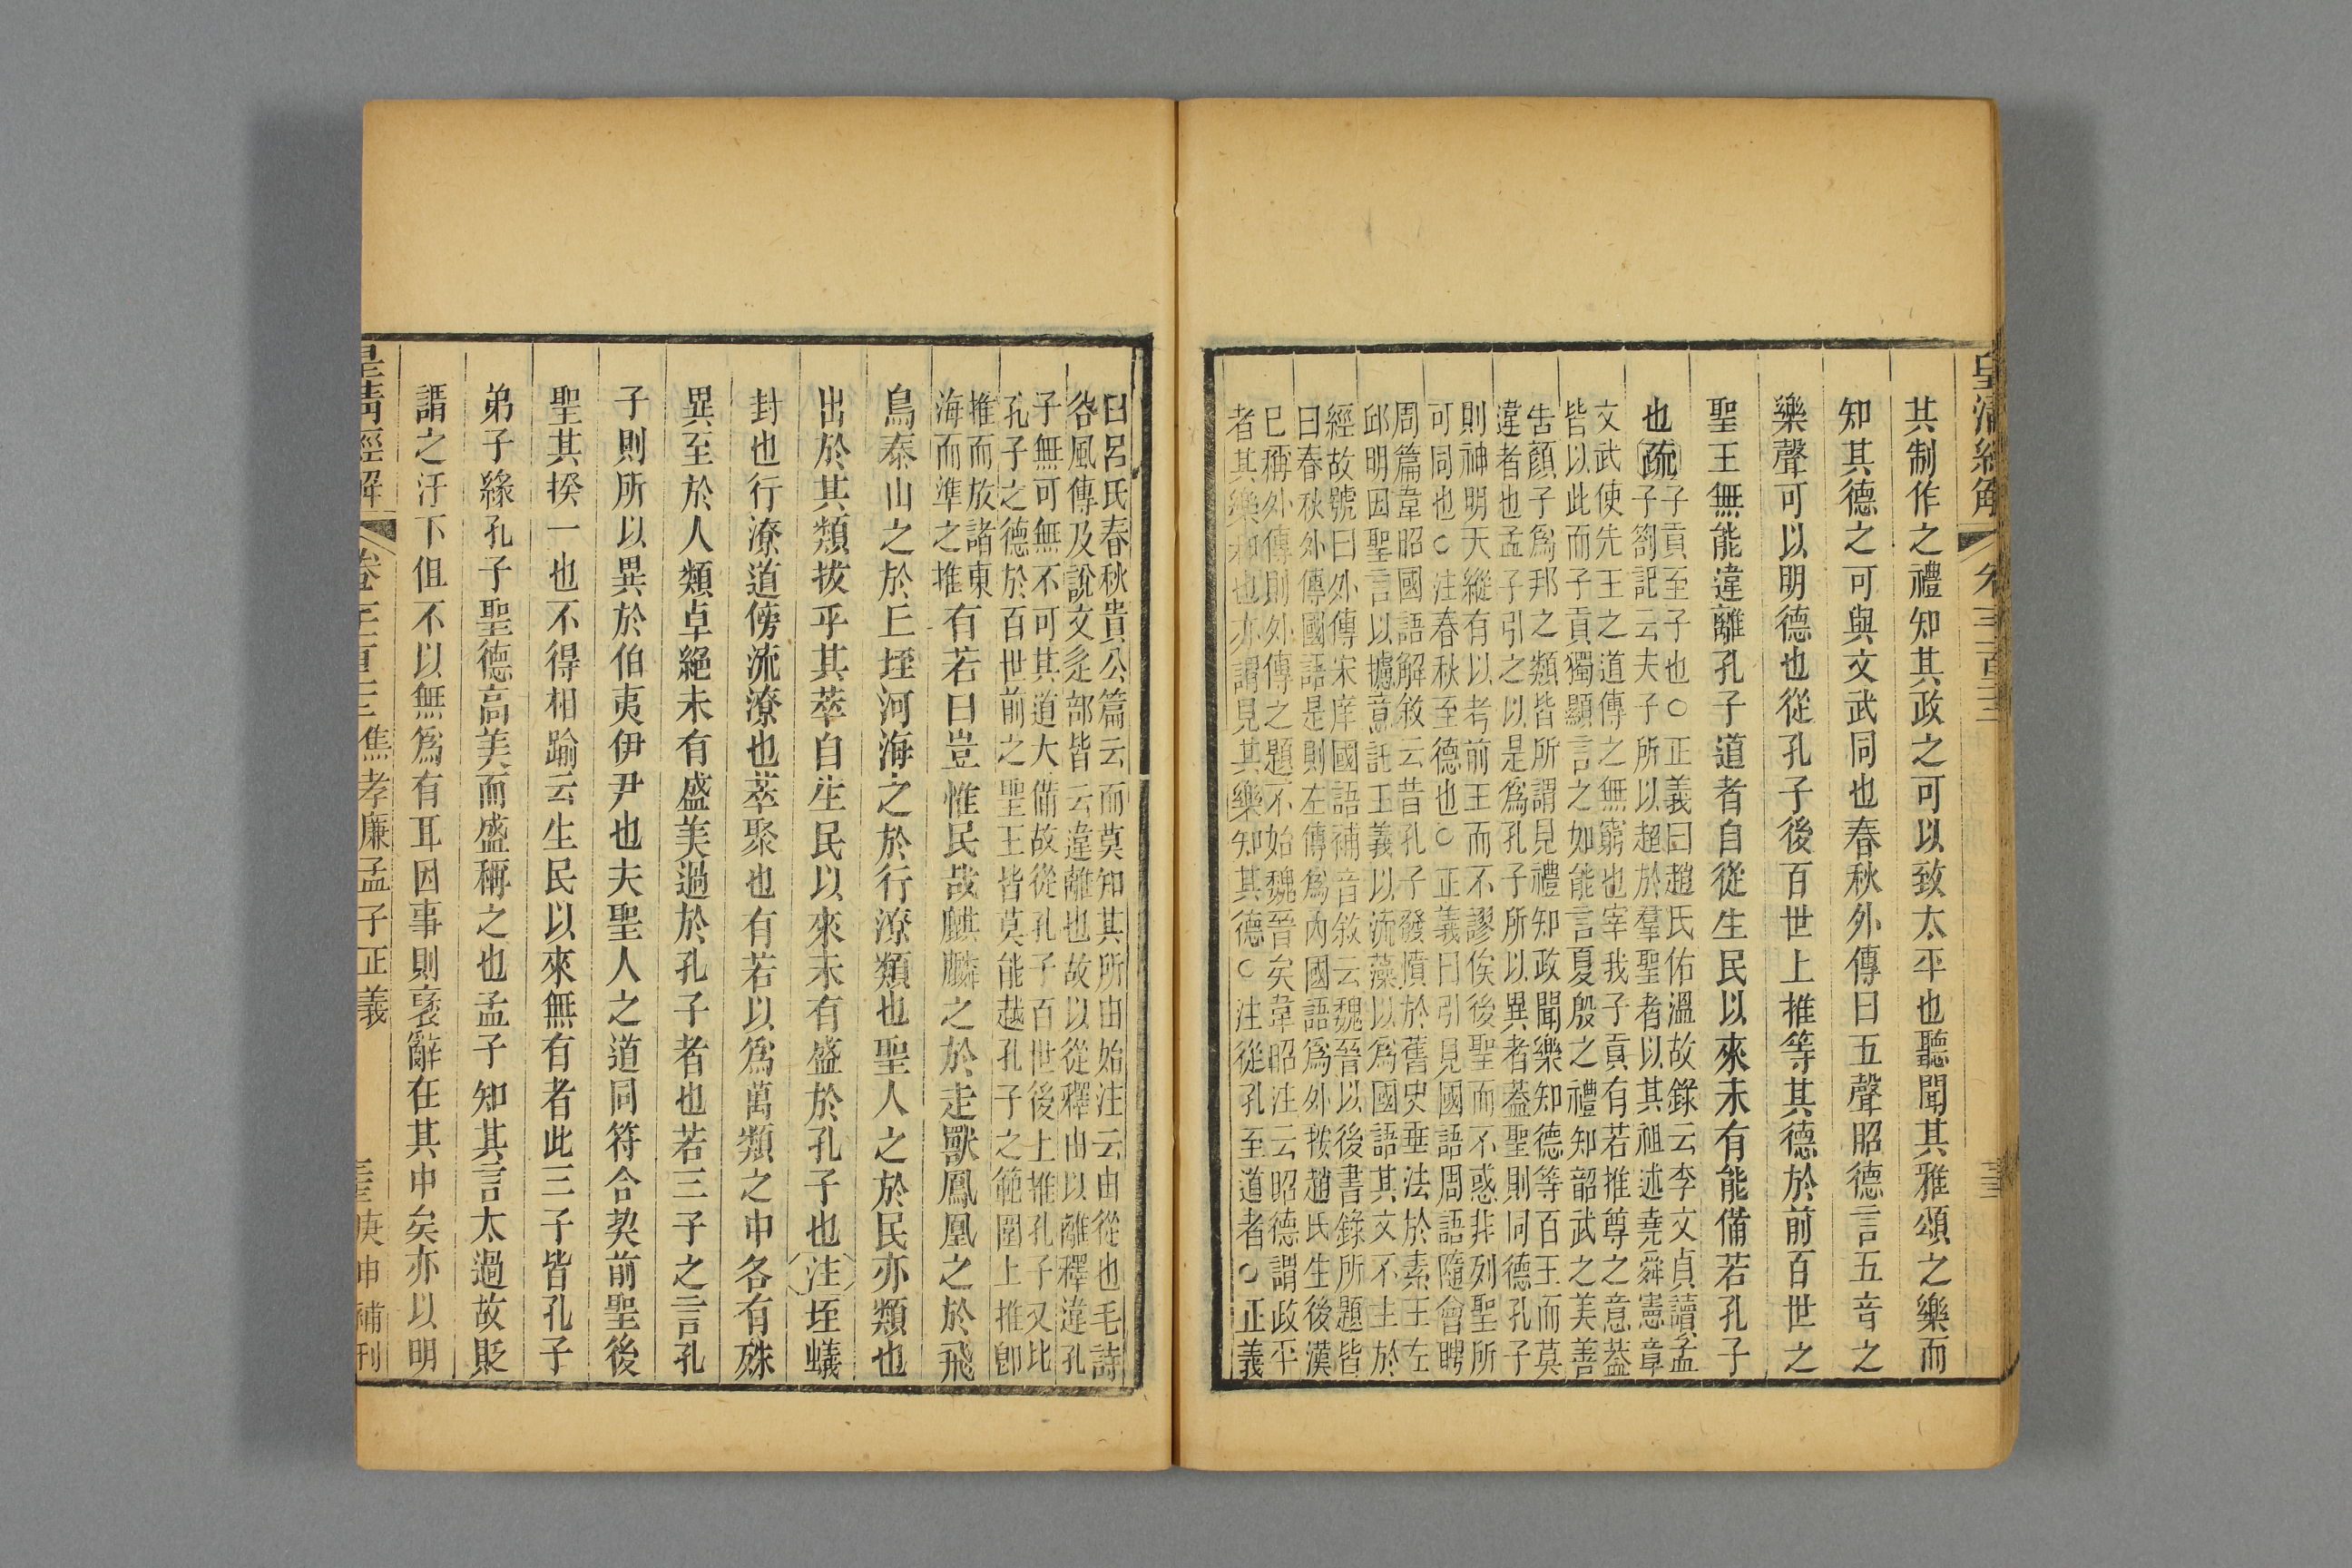 皇清經解 卷三百三
其制作之禮知其政之可以致太平也聽聞其雅頌之樂而
知其德之可與文武同也春秋外傳曰五聲昭德言五音之
樂聲可以明德也從孔子後百世上推等其德於前百世之
聖王無能違離孔子道者自從生民以來未有能備若孔子
也疏
子貢至子也○正義曰趙氏佑溫故錄云李文貞讀孟
子劄記云夫子所以超於羣聖者以其祖述堯舜憲章
文武使先王之道傳之無窮也宰我子貢有若推尊之意葢
皆以此而子貢獨顯言之如能言夏殷之禮知韶武之美善
告顏子爲邦之類皆所謂見禮知政聞樂知德等百王而莫
違者也孟子引之以是爲孔子所以異者葢聖則同德孔子
則神明天縱有以考前王而不謬俟後聖而不惑非列聖所
可同也○注春秋至德也○正義曰引見國語周語隨會聘
周篇韋昭國語解敘云昔孔子發憤於舊史垂法於素王左
邱明因聖言以攄意託王義以流藻以爲國語其文不主於
經故號曰外傳宋庠國語補音敘云魏晉以後書錄所題皆
曰春秋外傳國語是則左傳爲內國語爲外按趙氏生後漢
已稱外傳則外傳之題不始魏晉矣韋昭注云昭德謂政平
者其樂和也亦謂見其樂知其德○注從孔至道者○正義
曰呂氏春秋貴公篇云而莫知其所由始注云由從也毛詩
谷風傳及說文辵部皆云違離也故以從釋由以離釋違孔
子無可無不可其道大備故從孔子百世後上推孔子又比
孔子之德於百世前之聖王皆莫能越孔子之範圍上推卽
推而放諸東
海而準之推
有若曰豈惟民哉麒麟之於走獸鳳凰之於飛
鳥泰山之於丘垤河海之於行潦類也聖人之於民亦類也
出於其類拔乎其萃自生民以來未有盛於孔子也注垤蟻
封也行潦道傍流潦也萃聚也有若以爲萬類之中各有殊
異至於人類卓絕未有盛美過於孔子者也若三子之言孔
子則所以異於伯夷伊尹也夫聖人之道同符合契前聖後
聖其揆一也不得相踰云生民以來無有者此三子皆孔子
弟子緣孔子聖德高美而盛稱之也孟子知其言太過故貶
謂之汙下但不以無爲有耳因事則襃辭在其中矣亦以明
皇清經解 卷 焦孝廉孟子正義 庚申補刊